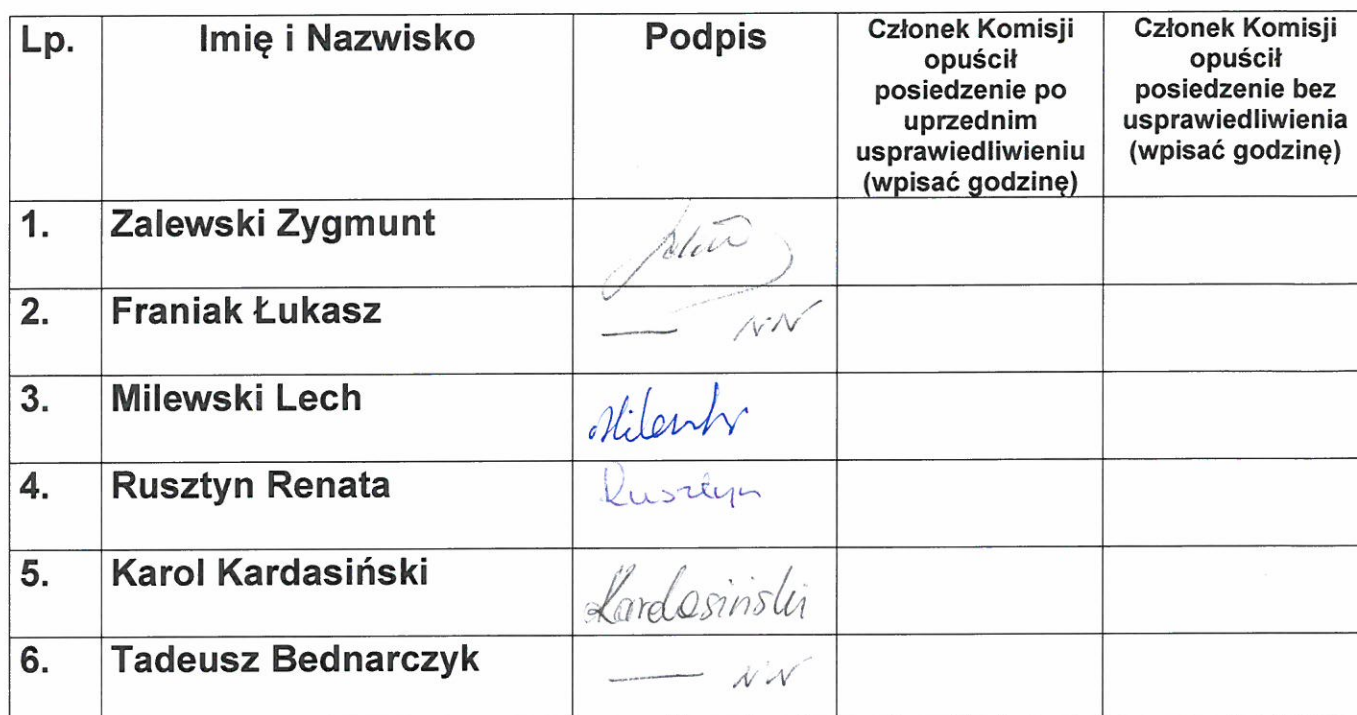 Lp. Imię i Nazwisko Podpis Członek Komisji opuścił posiedzenie po uprzednim usprawiedliwieniu (wpisać godzinę) Członek Komisji opuścił posiedzenie bez usprawiedliwienia (wpisać godzinę)
1. Zalewski Zygmunt
2. Franiak Łukasz — NN
3. Milewski Lech Milewski
4. Rusztyn Renata Rusztyn
5. Karol Kardasiński Kardasiński
6. Tadeusz Bednarczyk — NN